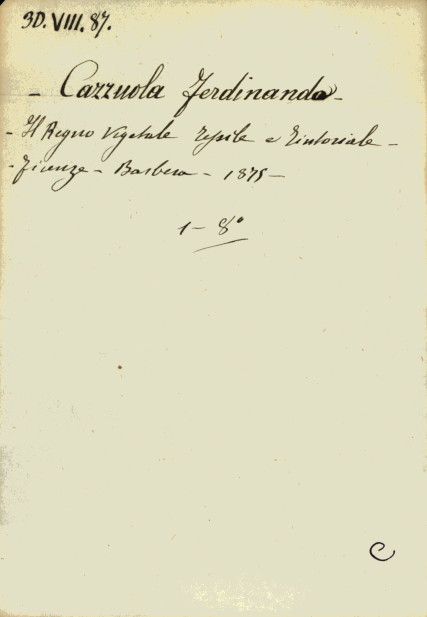 3D.VIII.87.
- Cazzuola Ferdinando -
- Il Regno Vegetale Tessile e Tintoriale -
- Firenze - Barbera - 1875 -
1 - 8°
C